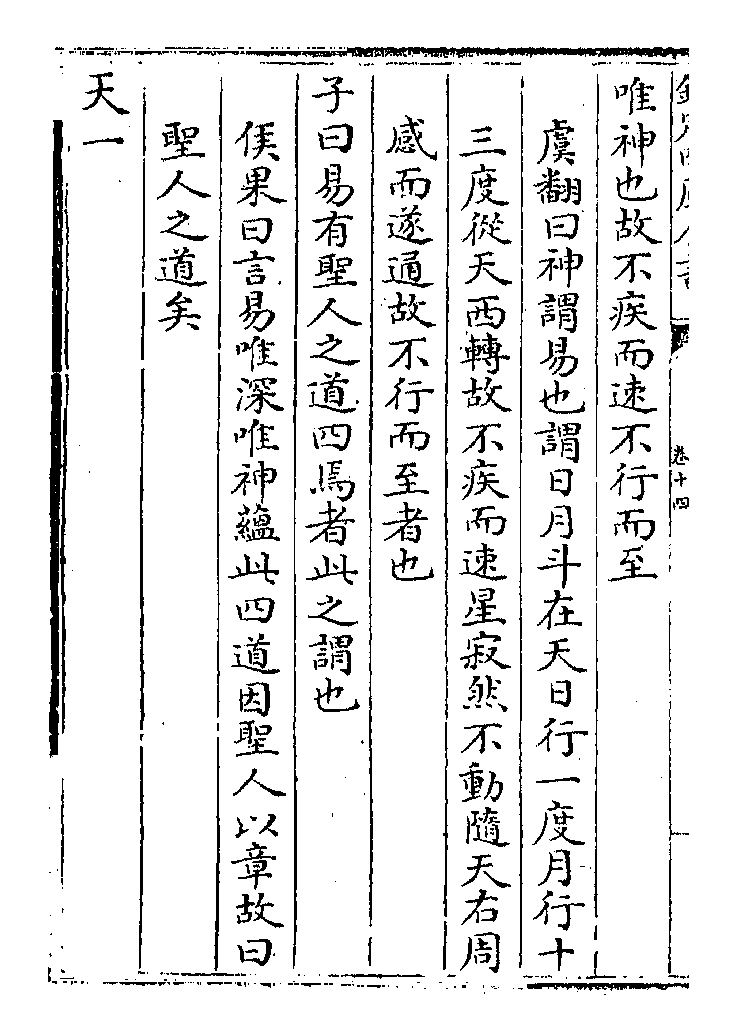 唯神也故不疾而速不行而至
虞翻曰神謂易也謂日月斗在天日行一度月行十
三度從天西轉故不疾而速星寂然不動隨天右周
感而遂通故不行而至者也
子曰易有聖人之道四焉者此之謂也
侯果曰言易唯深唯神蘊此四道因聖人以章故曰
聖人之道矣
天一
卷十四